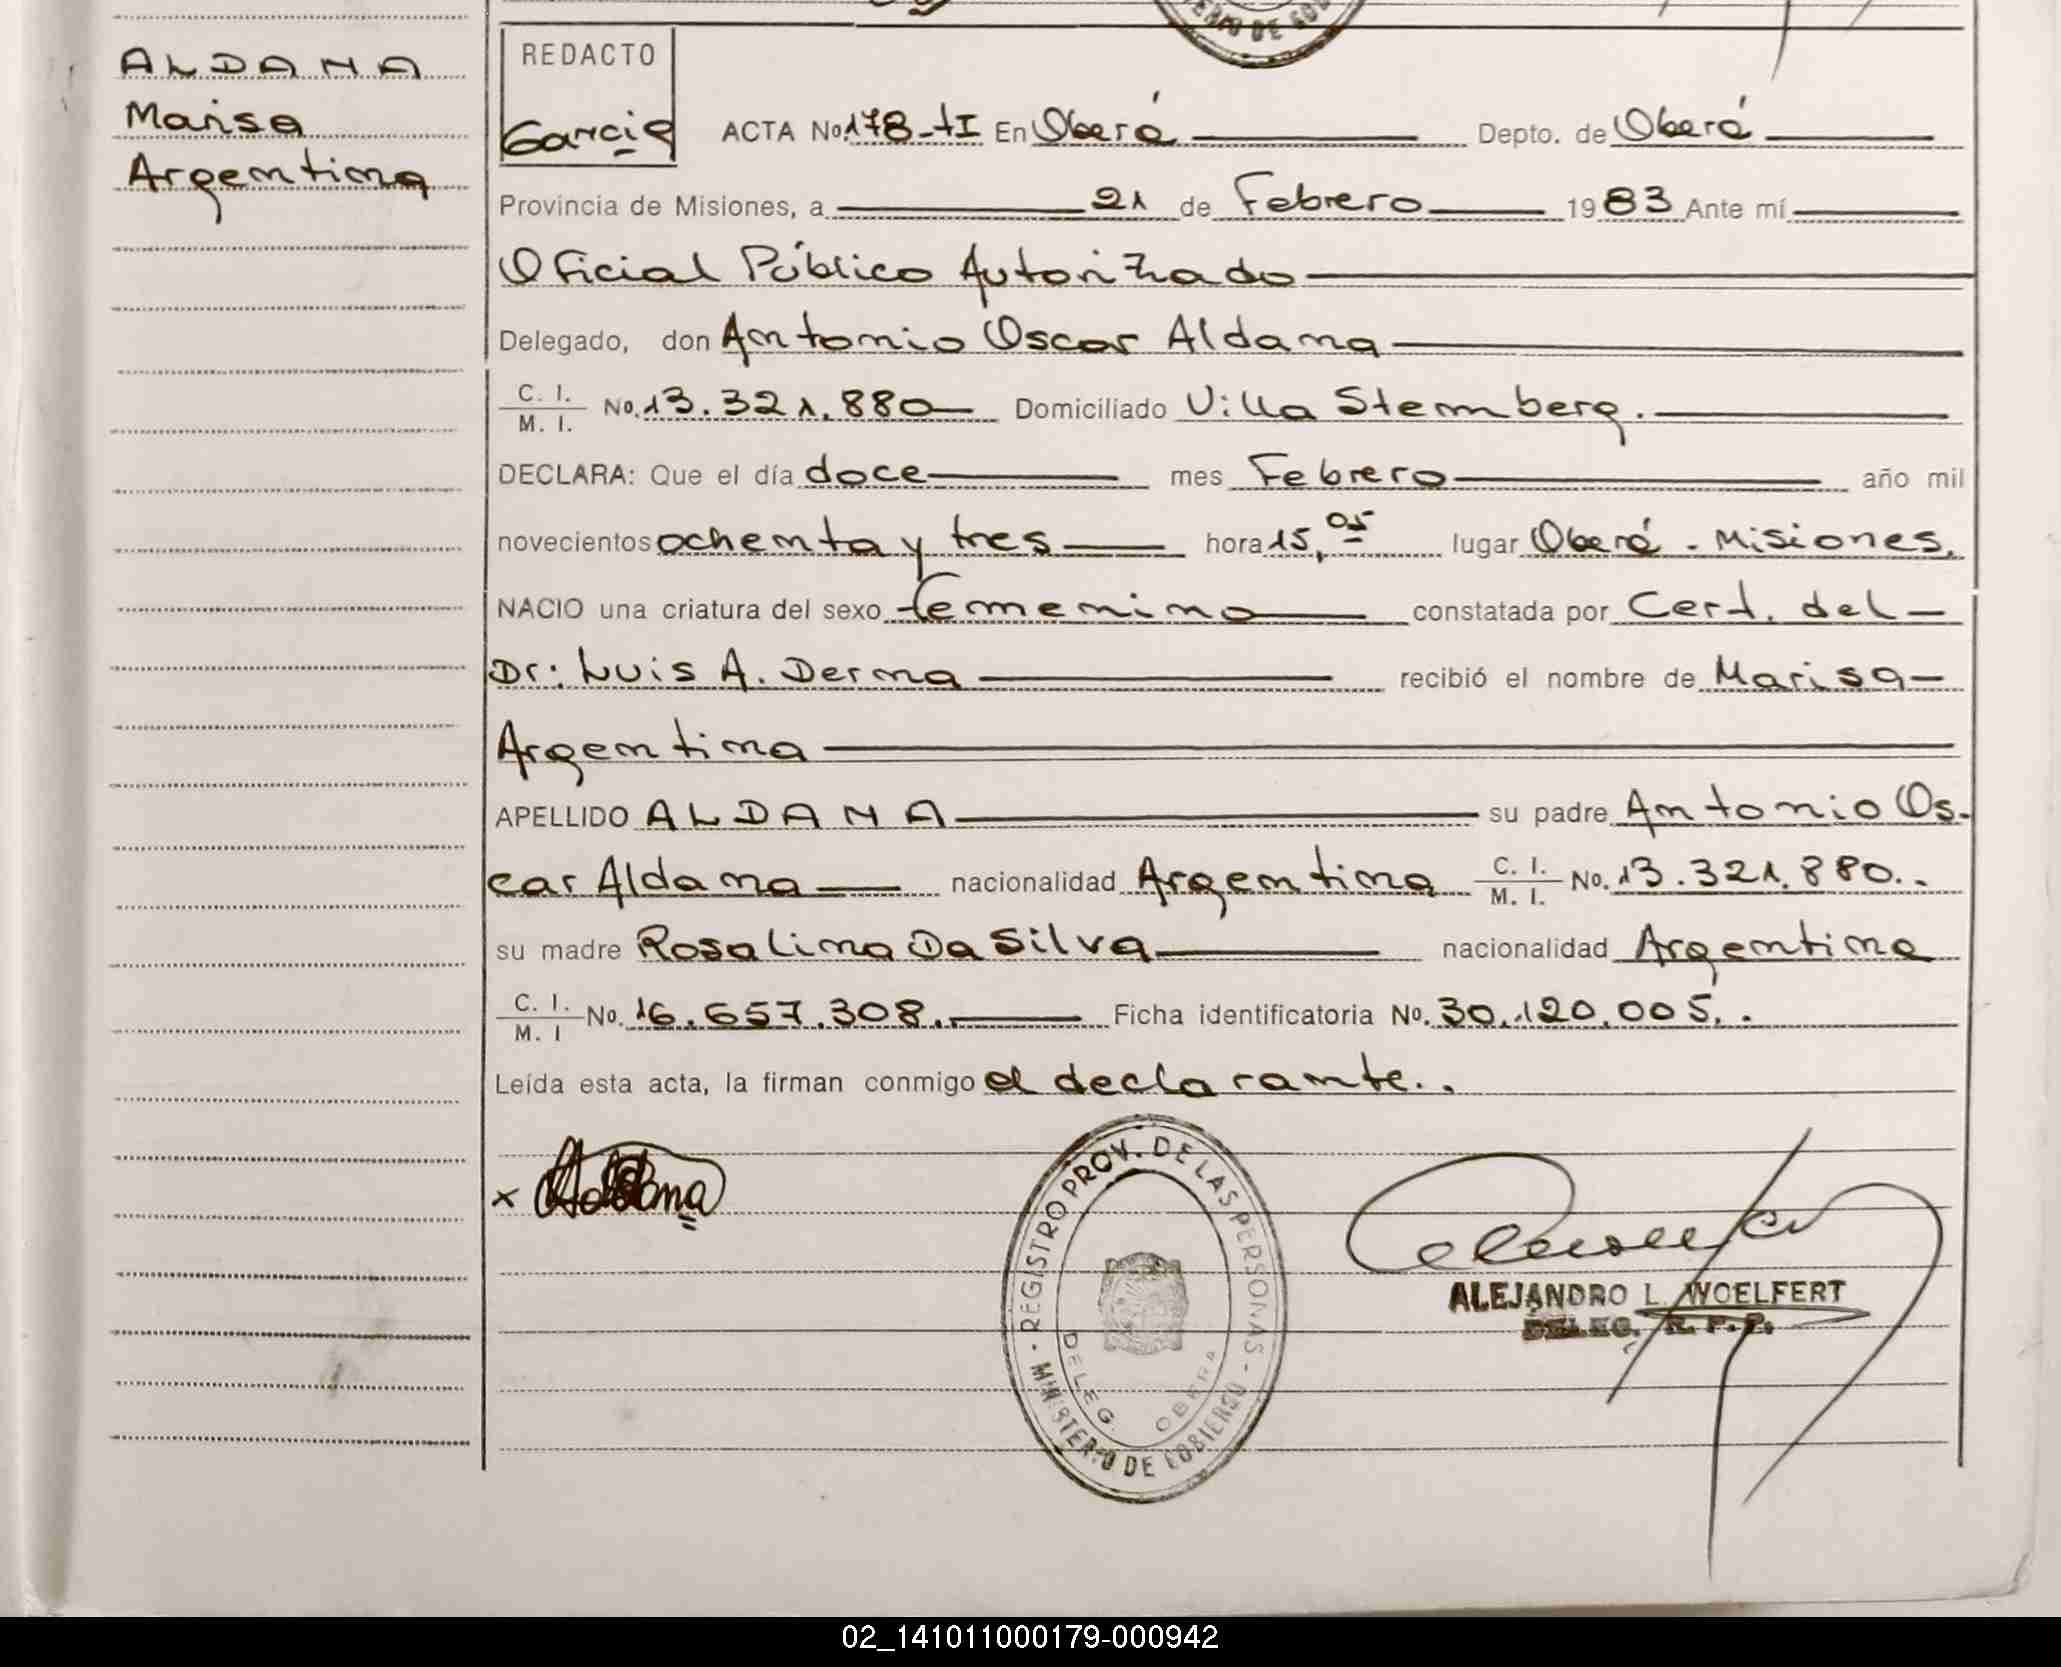 ALDANA
Marisa
Argentina
REDACTO
Garcia
ACTA No. 178-tI En Oberá Depto. de Oberá
Provincia de Misiones, a 21 de Febrero 1983 Ante mí
Oficial Público Autorizado
Delegado, don Antonio Oscar Aldana
C. I. / M. I. No. 13.321.880 Domiciliado Villa Stemberg.
DECLARA: Que el día doce mes Febrero año mil
novecientos ochenta y tres hora 15,05 lugar Oberá - Misiones.
NACIO una criatura del sexo femenino constatada por Cert. del
Dr: Luis A. Derna recibió el nombre de Marisa
Argentina
APELLIDO ALDANA su padre Antonio Os-
car Aldana nacionalidad Argentina C. I. / M. I. No. 13.321.880..
su madre Rosalina Da Silva nacionalidad Argentina
C. I. / M. I No. 16.657.308. Ficha identificatoria No. 30.120.005..
Leída esta acta, la firman conmigo el declarante..
x Aldana
REGISTRO PROV. DE LAS PERSONAS - MINISTERIO DE GOBIERNO
DELEG. OBERA
ALEJANDRO L. WOELFERT
DELEG. R. P. P.
02_141011000179-000942